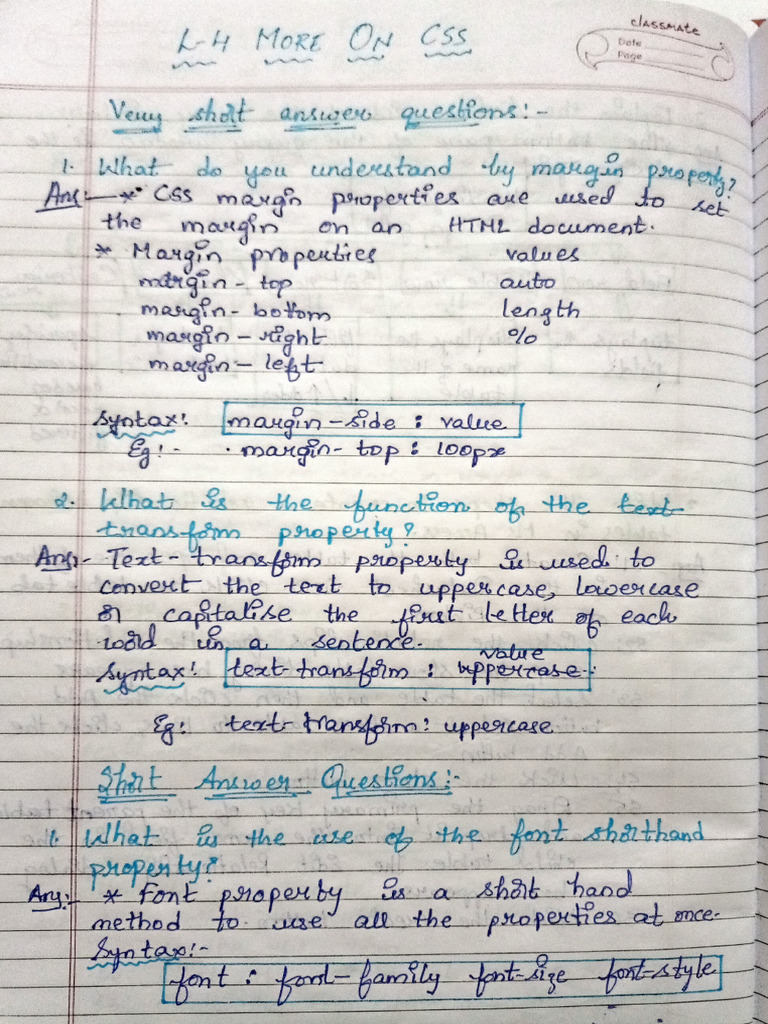 classmate
Date
Page
L-4 MORE ON CSS
Very short answer questions:-
1. What do you understand by margin property?
Ans:- * CSS margin properties are used to set
the margin on an HTML document.
* Margin properties values
margin - top auto
margin - bottom length
margin - right %
margin - left
Syntax: margin-side : value
Eg:- margin-top : 100px
2. What is the function of the text-
transform property?
Ans:- Text-transform property is used to
convert the text to uppercase, lowercase
or capitalise the first letter of each
word in a sentence.
value
Syntax: text-transform : uppercase.
Eg: text-transform: uppercase
Short Answer Questions:-
1. What is the use of the font shorthand
property?
Ans:- * Font property is a short hand
method to use all the properties at once.
Syntax:-
font : font-family font-size font-style